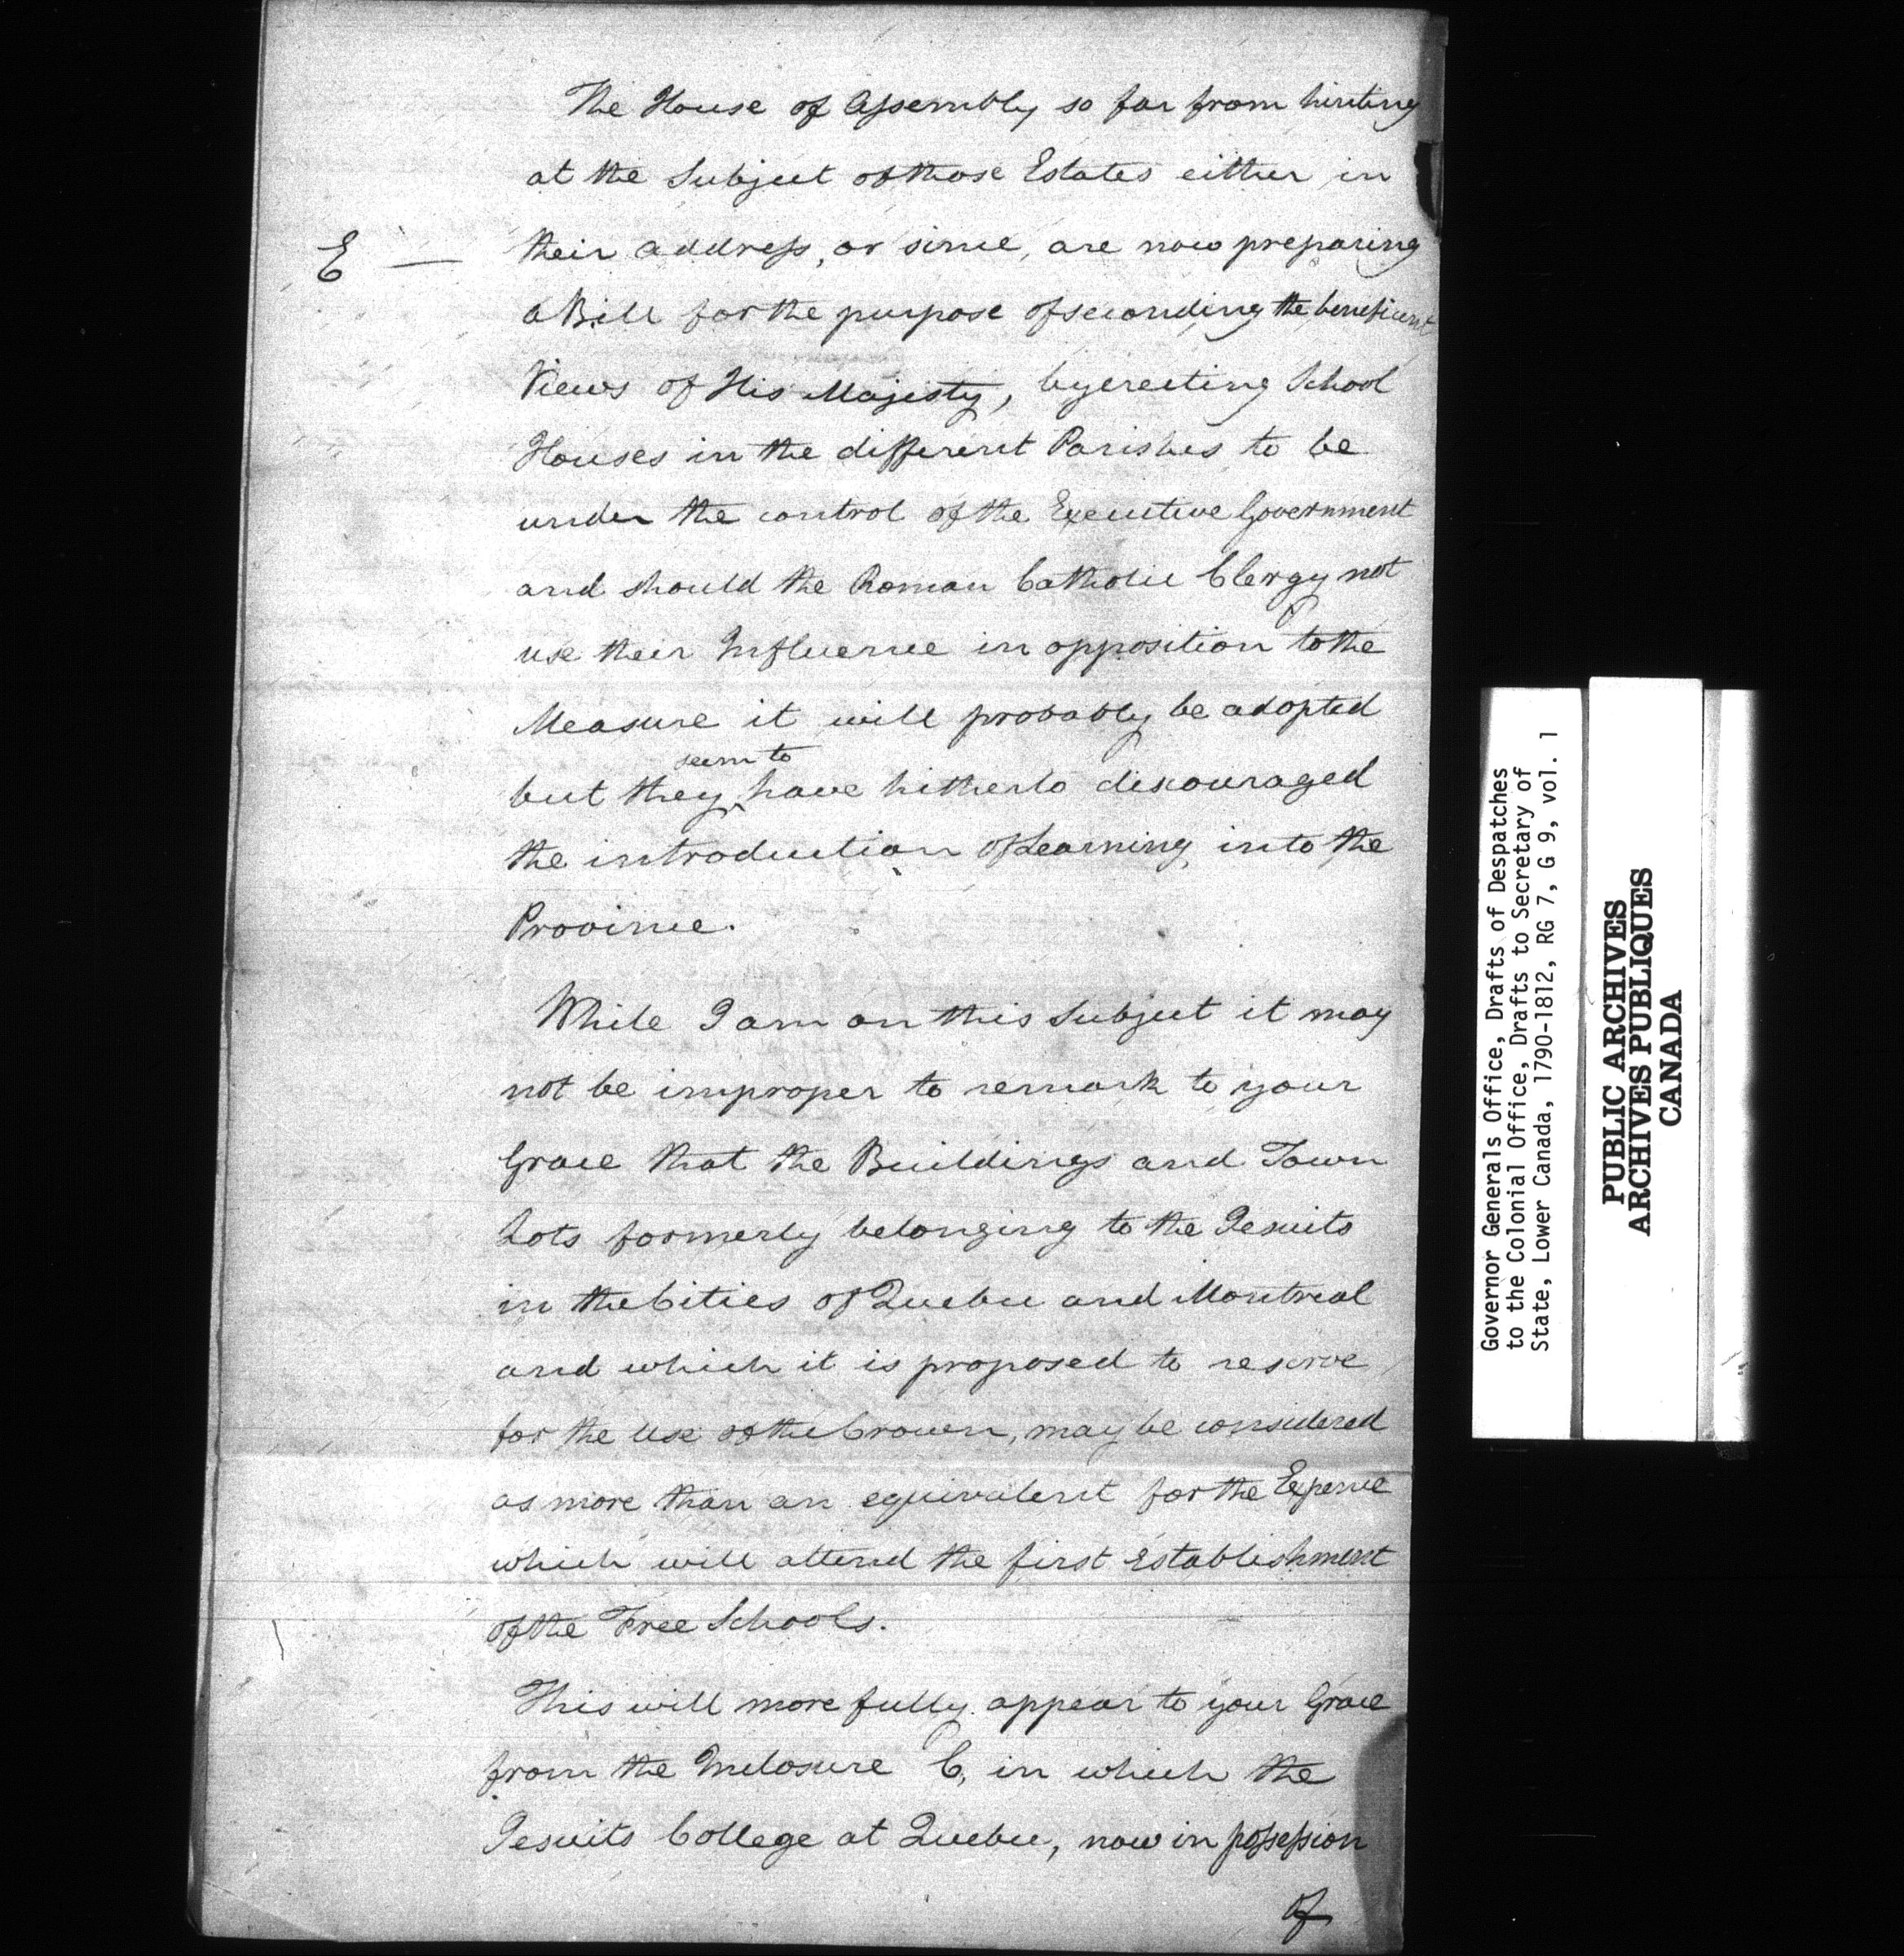 The House of Assembly so far from hinting
at the Subject of those Estates either in
E — their address, or since, are now preparing
a Bill for the purpose of seconding the beneficent
Views of His Majesty, by erecting School
Houses in the different Parishes to be
under the control of the Executive Government
and should the Roman Catholic Clergy not
use their Influence in opposition to the
Measure it will probably be adopted
seem to
but they ^ have hitherto discouraged
the introduction of Learning into the
Province.
While I am on this Subject it may
not be improper to remark to your
Grace that the Buildings and Town
Lots formerly belonging to the Jesuits
in the Cities of Quebec and Montreal
and which it is proposed to reserve
for the Use of the Crown, may be considered
as more than an equivalent for the Expence
which will attend the first Establishment
of the Free Schools.
This will more fully appear to your Grace
from the Inclosure C, in which the
Jesuits College at Quebec, now in possession
of
Governor Generals Office, Drafts of Despatches
to the Colonial Office, Drafts to Secretary of
State, Lower Canada, 1790-1812, RG 7, G 9, vol. 1
PUBLIC ARCHIVES
ARCHIVES PUBLIQUES
CANADA